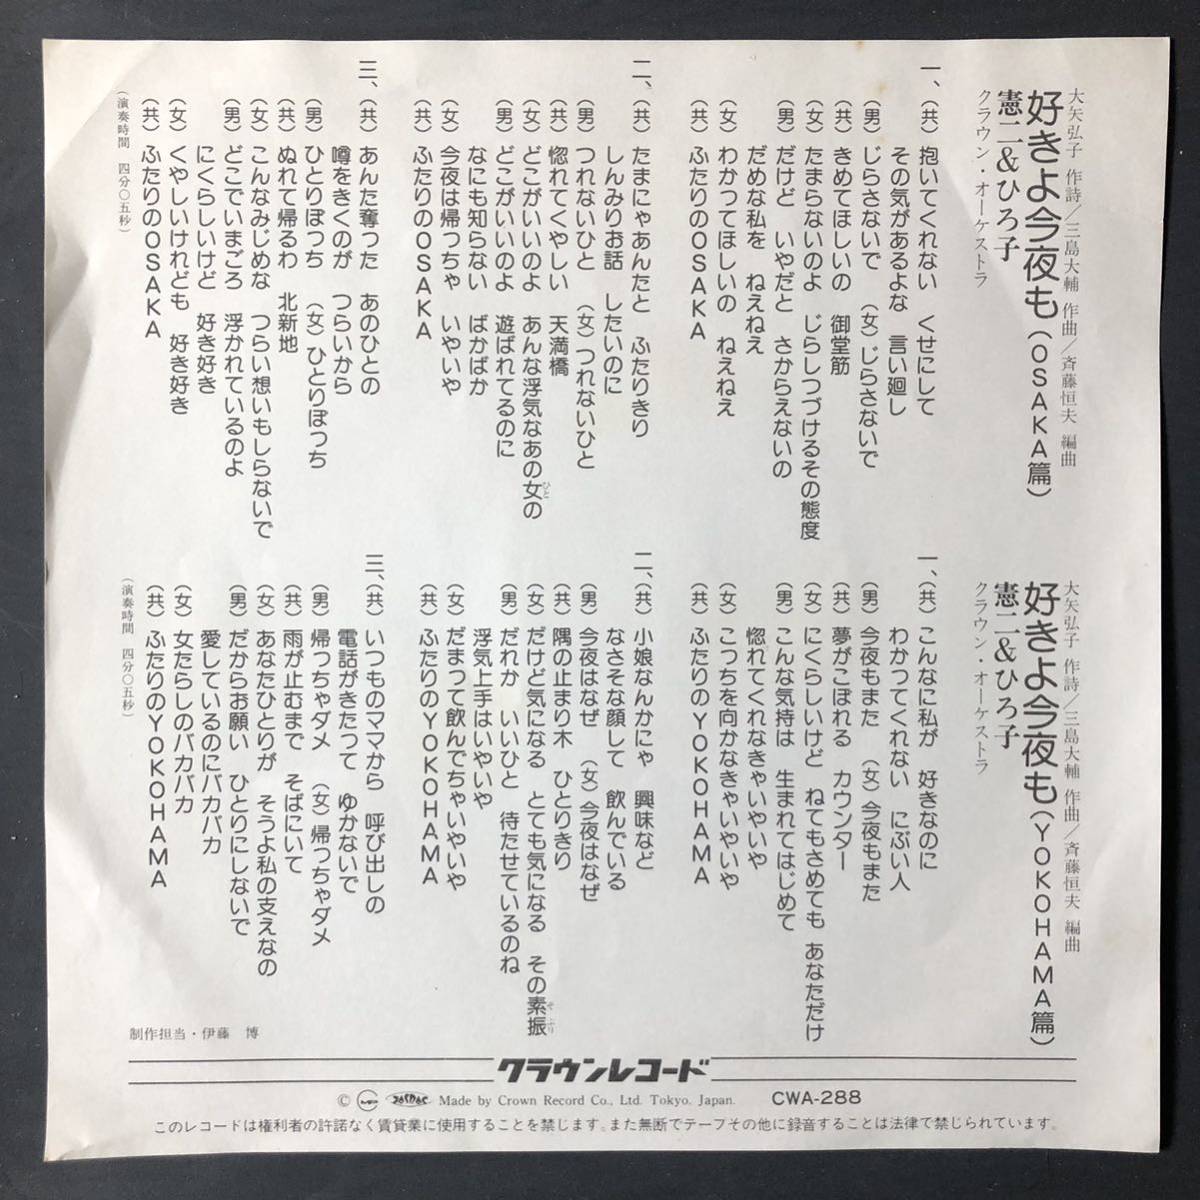 好きよ今夜も(OSAKA篇)
大矢弘子 作詩/三島大輔 作曲/斉藤恒夫 編曲
憲二&ひろ子
クラウン・オーケストラ
一、(共) 抱いてくれない くせにして
その気があるよな 言い廻し
(男) じらさないで (女)じらさないで
(共) きめてほしいの 御堂筋
(女) たまらないのよ じらしつづけるその態度
(男) だけど いやだと さからえないの
だめな私を ねえねえ
(女) わかってほしいの ねえねえ
(共) ふたりのOSAKA
二、(共) たまにゃあんたと ふたりきり
しんみりお話 したいのに
(男) つれないひと (女)つれないひと
(共) 惚れてくやしい 天満橋
(女) どこがいいのよ あんな浮気なあの女の
ひと
(男) どこがいいのよ 遊ばれてるのに
なにも知らない ばかばか
(女) 今夜は帰っちゃ いやいや
(共) ふたりのOSAKA
三、(共) あんた奪った あのひとの
噂をきくのが つらいから
(男) ひとりぽっち (女)ひとりぽっち
(共) ぬれて帰るわ 北新地
(女) こんなみじめな つらい想いもしらないで
(男) どこでいまごろ 浮かれているのよ
にくらしいけど 好き好き
(女) くやしいけれども 好き好き
(共) ふたりのOSAKA
(演奏時間 四分〇五秒)
好きよ今夜も(YOKOHAMA篇)
大矢弘子 作詩/三島大輔 作曲/斉藤恒夫 編曲
憲二&ひろ子
クラウン・オーケストラ
一、(共) こんなに私が 好きなのに
わかってくれない にぶい人
(男) 今夜もまた (女)今夜もまた
(共) 夢がこぼれる カウンター
(女) にくらしいけど ねてもさめても あなただけ
(男) こんな気持は 生まれてはじめて
惚れてくれなきゃいやいや
(女) こっちを向かなきゃいやいや
(共) ふたりのYOKOHAMA
二、(共) 小娘なんかにゃ 興味など
なさそな顔して 飲んでいる
(男) 今夜はなぜ (女)今夜はなぜ
(共) 隅の止まり木 ひとりきり
(女) だけど気になる とても気になる その素振
そぶり
(男) だれか いいひと 待たせているのね
浮気上手はいやいや
(女) だまって飲んでちゃいやいや
(共) ふたりのYOKOHAMA
三、(共) いつものママから 呼び出しの
電話がきたって ゆかないで
(男) 帰っちゃダメ (女)帰っちゃダメ
(共) 雨が止むまで そばにいて
(女) あなたひとりが そうよ私の支えなの
(男) だからお願い ひとりにしないで
愛しているのにバカバカ
(女) 女たらしのバカバカ
(共) ふたりのYOKOHAMA
(演奏時間 四分〇五秒)
制作担当・伊藤 博
クラウンレコード
© Made by Crown Record Co., Ltd. Tokyo. Japan. CWA-288
このレコードは権利者の許諾なく賃貸業に使用することを禁じます。また無断でテープその他に録音することは法律で禁じられています。